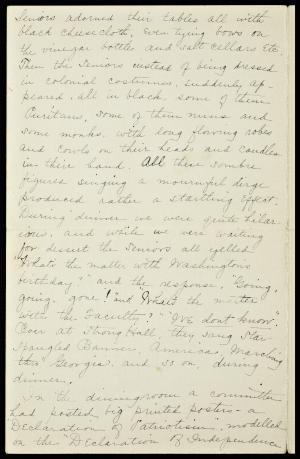 Seniors adorned their tables all with
black cheesecloth, even tying bows on
the vinegar bottles and salt cellars etc.
Then the Seniors instead of being dressed
in colonial costumes, suddenly ap-
peared, all in black, some of them
Puritans, some of them nuns and
some monks, with long flowing robes
and cowls on their heads and candles
in their hand. All these sombre
figures singing a mournful dirge
produced rather a startling effect.
During dinner we were quite hilar-
ious, and while we were waiting
for desert the Seniors all yelled
"What's the matter with Washington's
birthday?" and the response, "Going,
going, gone!" and "What's the matter
with the Faculty?" "We don't know".
Over at Strong Hall, they sang Star-
Spangled Banner, America, Marching
thro' Georgia, and so on, during
dinner.
In the diningroom a committee
had posted big printed posters - a
"Declaration of Patriotism", modelled
on the "Declaration of Independence